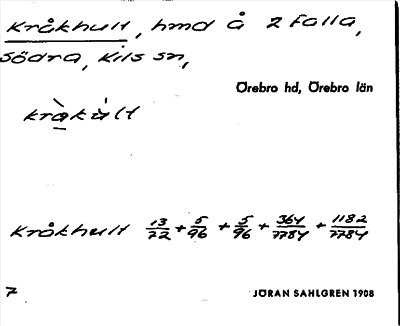 Kråkhult, hmd å 2 Falla,
Södra, Kils sn,
Örebro hd, Örebro län
kràkùlt
Kråkhult 13/72 + 5/96 + 5/96 + 364/7784 + 1182/7784
7
JÖRAN SAHLGREN 1908